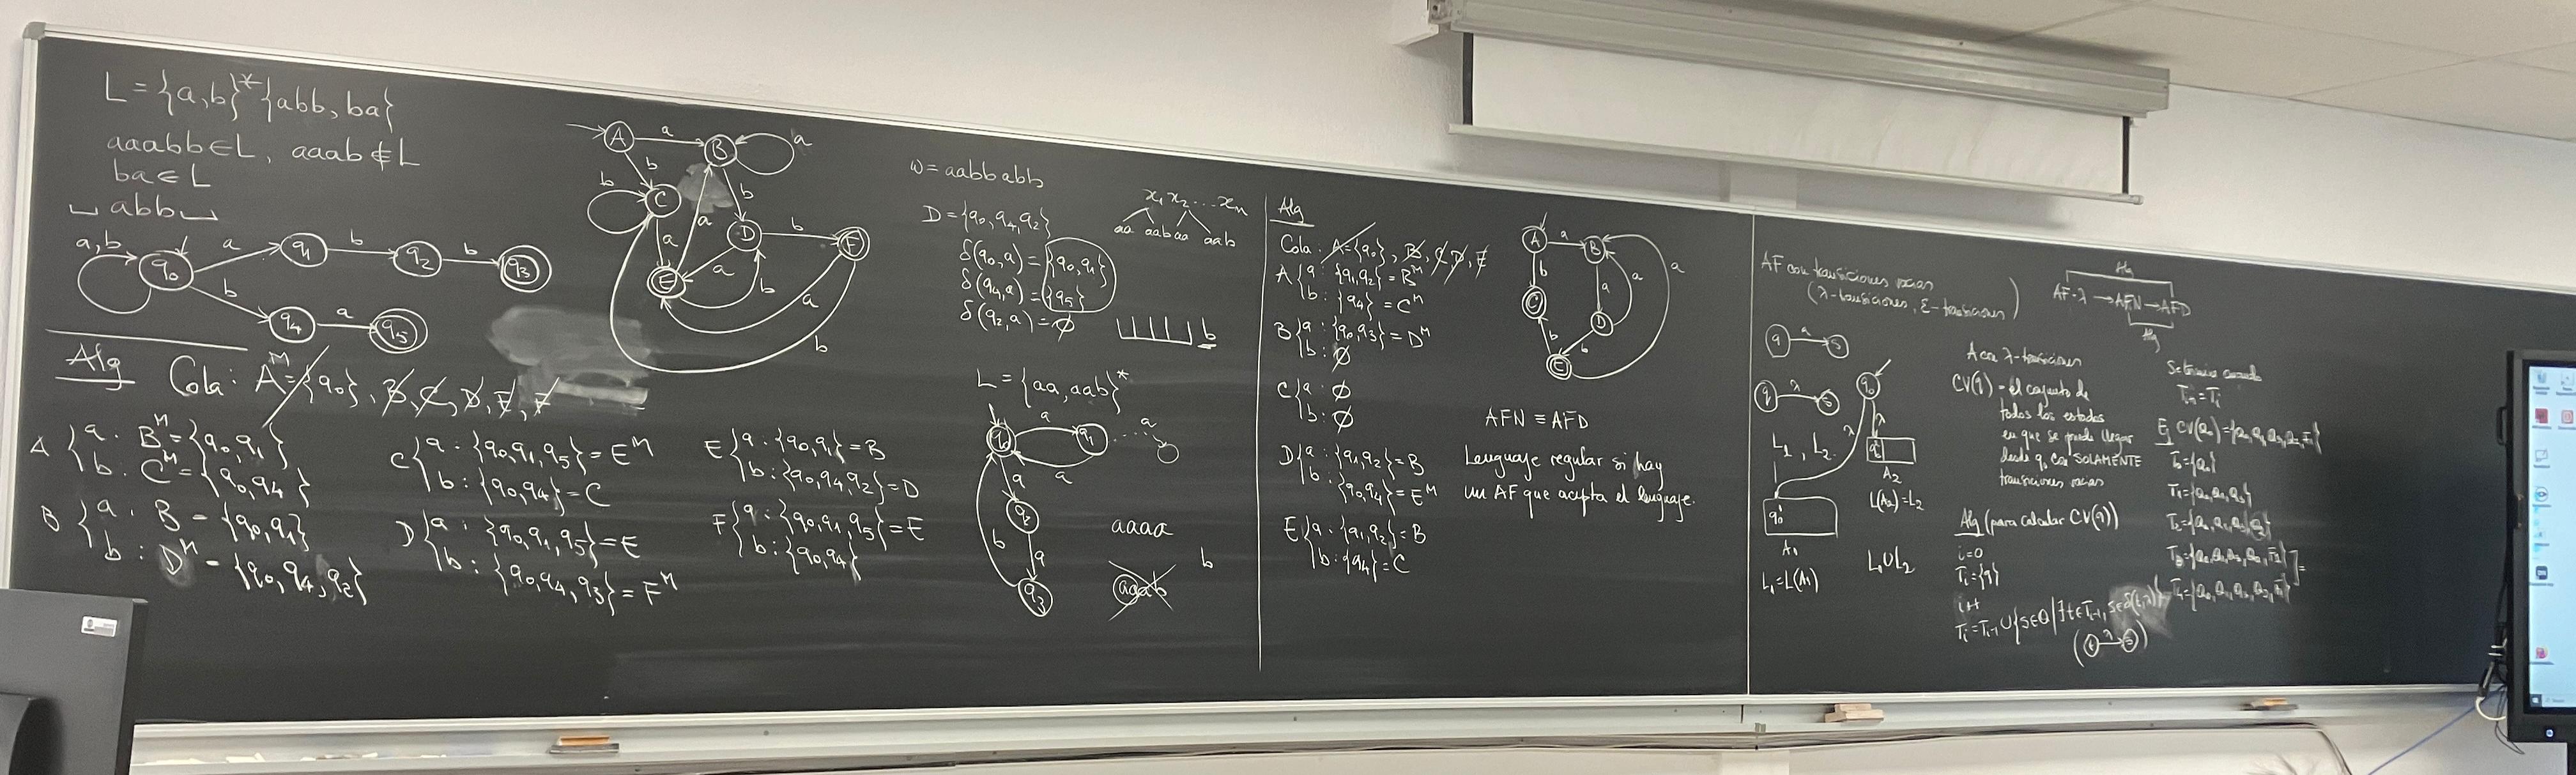 L = {a,b}*{abb, ba}
aaabb ∈ L, aaab ∉ L
ba ∈ L
⎵ abb ⎵
a,b
q0 a q1 b q2 b q3
b q4 a q5
Alg Cola: A^M = {q0}, B, C, D, E, F
A { a: B^M = {q0,q1}
b: C^M = {q0,q4}
B { a: B = {q0,q1}
b: D^M = {q0,q4,q2}
C { a: {q0,q1,q5} = E^M
b: {q0,q4} = C
D { a: {q0,q1,q5} = E
b: {q0,q4,q3} = F^M
E { a: {q0,q1} = B
b: {q0,q4,q2} = D
F { a: {q0,q1,q5} = E
b: {q0,q4}
A a B a
b b
b C a a D b F
E a b a
b
w = aabbabb
D = {q0,q4,q2}
δ(q0,a) = {q0,q1}
δ(q4,a) = {q5}
δ(q2,a) = ∅
x1 x2 ... xn
aa aab aa aab
b
L = {aa, aab}*
q0 a q1 a
a
a
q2
b a
q3
aaaa
aaab
b
Alg
Cola: A = {q0}, B, C, D, E
A { a: {q1,q2} = B^M
b: {q4} = C^M
B { a: {q0,q3} = D^M
b: ∅
C { a: ∅
b: ∅
D { a: {q1,q2} = B
b: {q0,q4} = E^M
E { a: {q1,q2} = B
b: {q4} = C
A a B
b a a a
C D
b b
E
AFN ≡ AFD
Lenguaje regular si hay
un AF que acepta el lenguaje.
AF con transiciones vacias
(λ-transiciones, ε-transiciones)
Alg
AF-λ → AFN → AFD
Alg
q a s
q λ s
q0
λ λ
L1, L2
q0'
A1
L1 = L(A1)
A2
L(A2) = L2
L1 ∪ L2
A con λ-transiciones
CV(q) - el conjunto de
todos los estados
en que se puede llegar
desde q con SOLAMENTE
transiciones vacias
Alg (para calcular CV(q))
i=0
Ti = {q}
i++
Ti = Ti-1 ∪ {s∈Q | ∃t∈Ti-1, s∈δ(t,λ)}
(t λ s)
Se termina cuando
Ej
T0 = {q0}